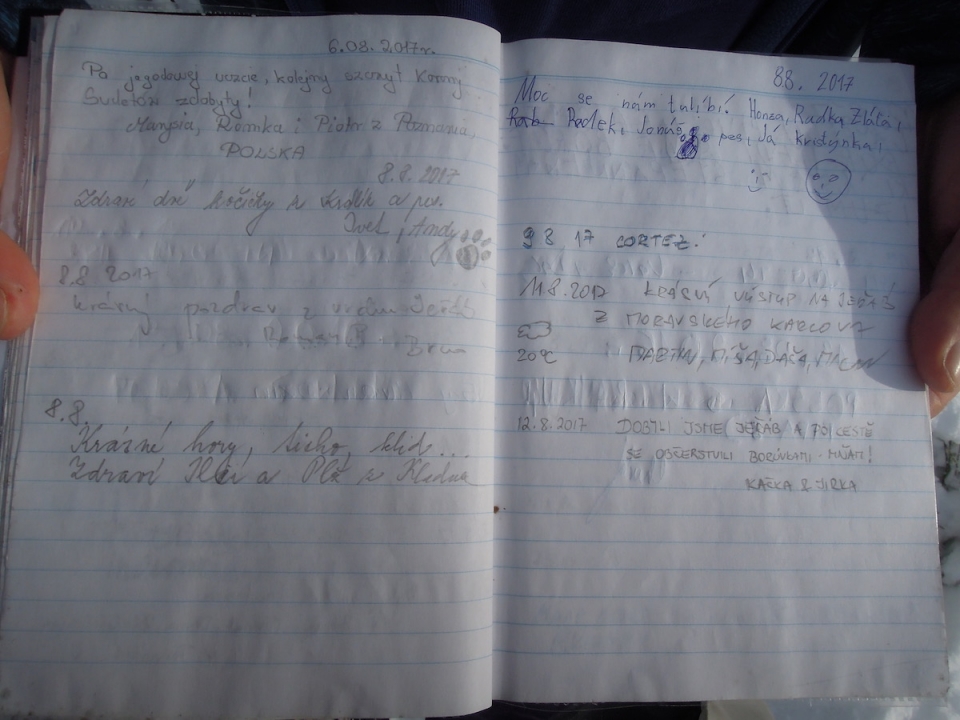 6.08.2017r.
Po jagodowej uczcie, kolejny szczyt Korony
Sudetów zdobyty!
Marysia, Romka i Piotr z Poznania,
POLSKA
8.8.2017
Zdraví dvě kočičky a a pes.
Andy
8.8 2017
krásný pozdrav z vrcholu Jeřáb
Brna
8.8.
Krásné hory, ticho, klid...
Zdraví a z
88. 2017
Moc se nám tu líbí! Honza, Radka, Zláťa,
Radek, Jonáš, pes, Já Kristýnka,
9 8 17 CORTEZ.
11.8.2017 KRÁSNÝ VÝSTUP NA JEŘÁB
Z MORAVSKÉHO KARLOVA
20°C MARTIN, MÍŠA, DÁŠA, MILAN
12.8.2017 DOBYLI JSME JEŘÁB A PO CESTĚ
SE OBČERSTVILI BORŮVKAMI - MŇAM!
KAČKA & JIRKA